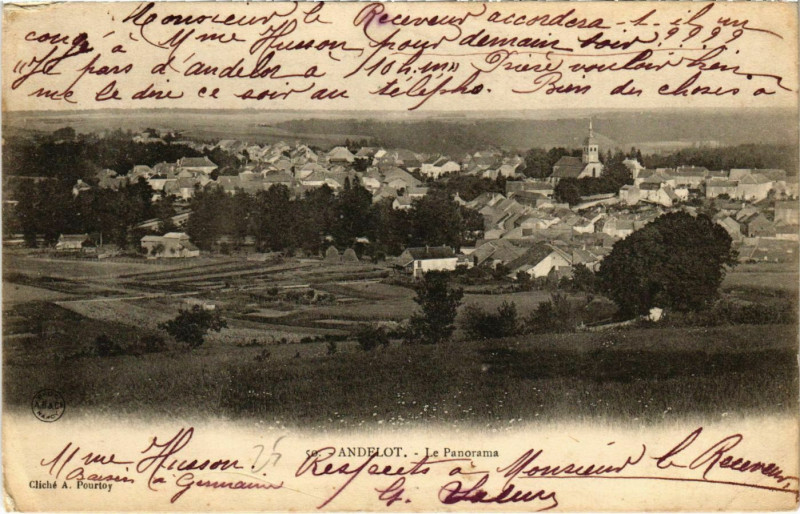 Monsieur le Receveur accordera-t-il un
congé à Mme Husson pour demain soir ????
"Je pars d'andelot à 110h.m" Prière vouloir bien
me le dire ce soir au télépho. Bien des choses à
50. - ANDELOT. - Le Panorama
Mme Husson.
Baisers à Germaine
Respects à Monsieur le Receveur,
G.
Cliché A. Pourtoy